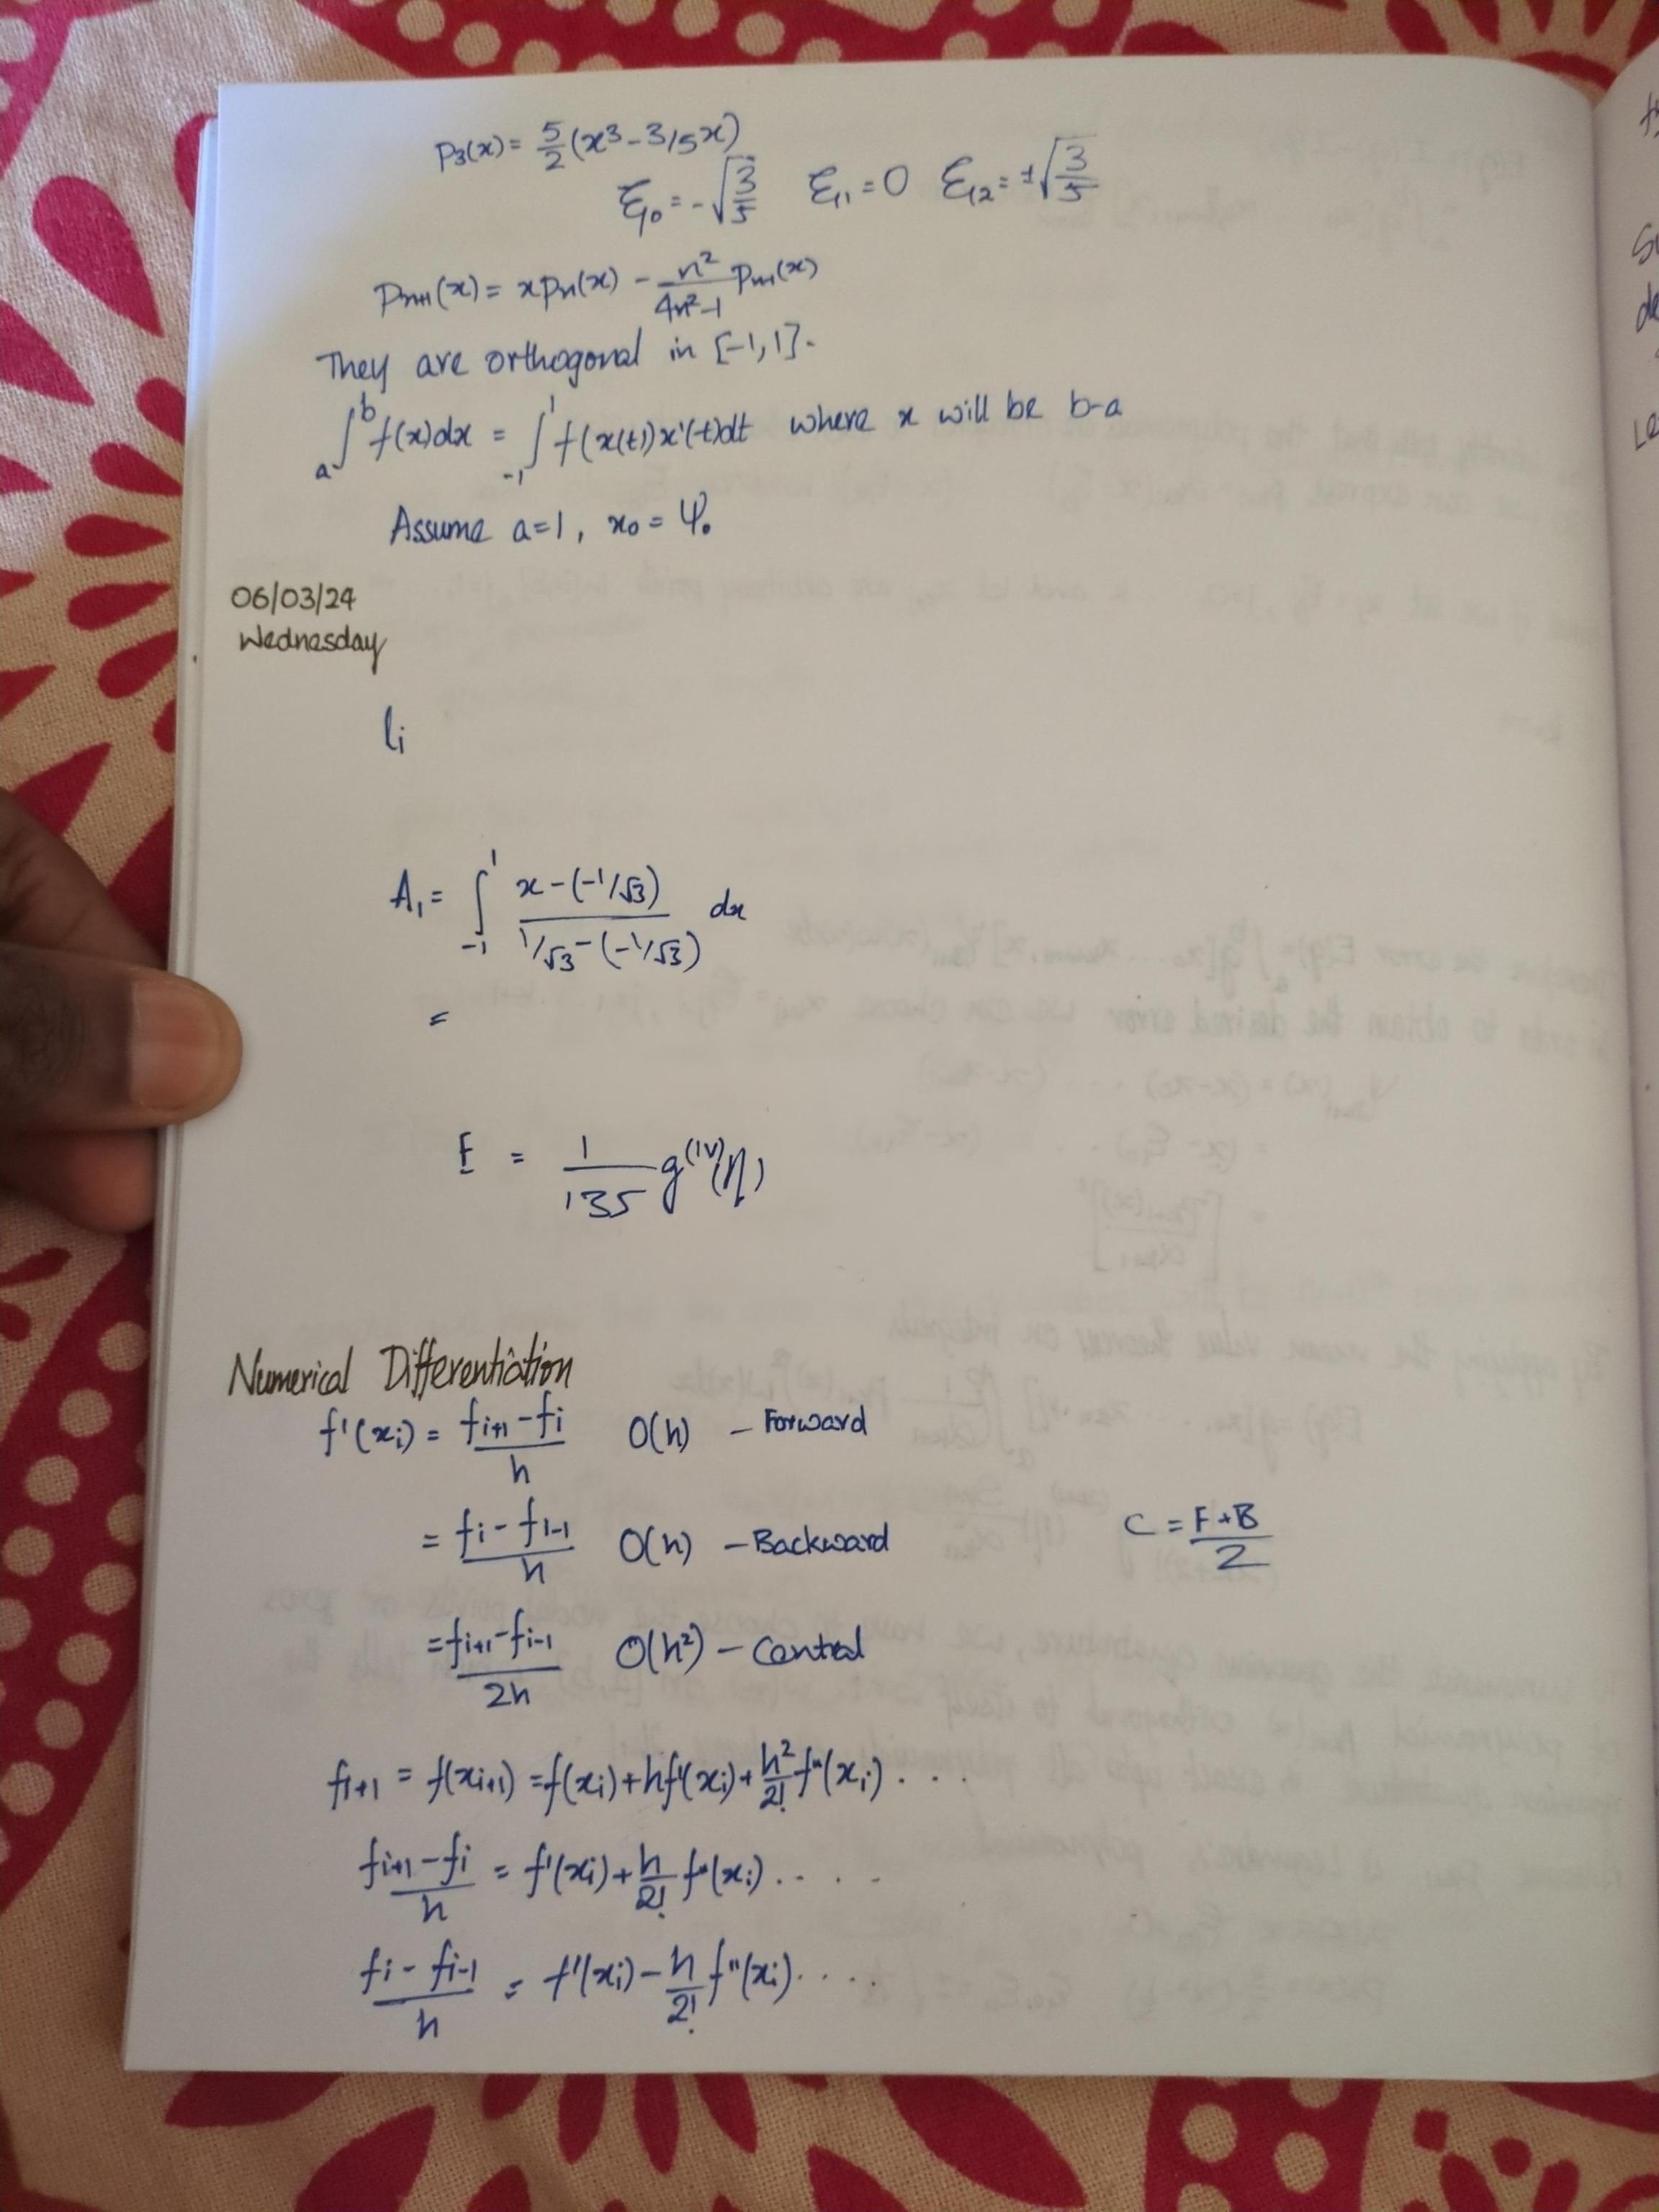 P₃(x) = 5/2 (x³ - 3/5 x)
ξ₀ = -√(3/5) ξ₁ = 0 ξ₂ = ±√(3/5)
Pₙ₊₁(x) = xPₙ(x) - n²/(4n²-1) Pₙ₋₁(x)
They are orthogonal in [-1,1].
ₐ∫ᵇ f(x)dx = ₋₁∫¹ f(x(t))x'(t)dt where x will be b-a
Assume a=1, x₀ = Ψ₀
06/03/24
Wednesday
li
A₁ = ₋₁∫¹ (x-(-1/√3))/(1/√3-(-1/√3)) dx
=
E = 1/135 g⁽ᴵⱽ⁾(η)
Numerical Differentiation
f'(xᵢ) = (fᵢ₊₁ - fᵢ)/h O(h) - Forward
= (fᵢ - fᵢ₋₁)/h O(h) - Backward C = (F+B)/2
= (fᵢ₊₁ - fᵢ₋₁)/2h O(h²) - Central
fᵢ₊₁ = f(xᵢ₊₁) = f(xᵢ) + hf'(xᵢ) + h²/2! f"(xᵢ) ...
(fᵢ₊₁ - fᵢ)/h = f'(xᵢ) + h/2! f"(xᵢ) ....
(fᵢ - fᵢ₋₁)/h = f'(xᵢ) - h/2! f"(xᵢ) ....